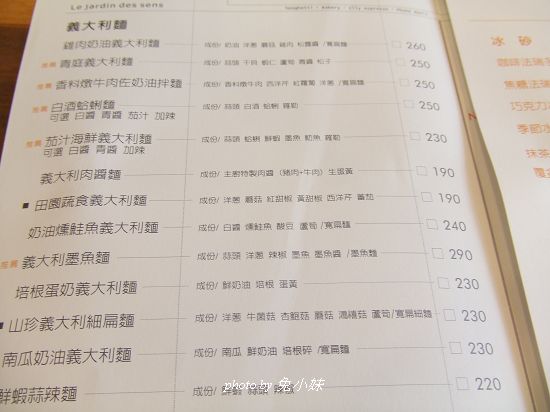 Le jardin des sens
義大利麵
雞肉奶油義大利麵 成份/ 奶油 洋蔥 蘑菇 雞肉 松露醬 /寬扁麵 □ 260
推薦 青庭義大利麵 成份/ 蒜頭 干貝 蝦仁 蘆筍 青醬 松子 □ 250
推薦 香料燉牛肉佐奶油拌麵 成份/ 香料燉牛肉 西洋芹 紅蘿蔔 洋蔥 /寬扁麵 □ 250
推薦 白酒蛤蜊麵 成份/ 蒜頭 白酒 蛤蜊 羅勒 □ 250
可選 白醬 青醬 茄汁 加辣
推薦 茄汁海鮮義大利麵 成份/ 蒜頭 蛤蜊 鮮蝦 墨魚 魴魚 羅勒 □ 230
可選 白醬 青醬 加辣
義大利肉醬麵 成份/ 主廚特製肉醬 (豬肉+牛肉) 生蛋黃 □ 190
■ 田園蔬食義大利麵 成份/ 洋蔥 蘑菇 紅甜椒 黃甜椒 西洋芹 蕃茄 □ 190
奶油燻鮭魚義大利麵 成份/ 白醬 燻鮭魚 酸豆 蘆筍 /寬扁麵 □ 240
推薦 義大利墨魚麵 成份/ 蒜頭 洋蔥 辣椒 墨魚 墨魚醬 /墨魚麵 □ 290
培根蛋奶義大利麵 成份/ 鮮奶油 培根 蛋黃 □ 230
■ 山珍義大利細扁麵 成份/ 洋蔥 牛菌菇 杏鮑菇 蘑菇 鴻禧菇 蘆筍 /寬扁細麵 □ 230
南瓜奶油義大利麵 成份/ 南瓜 鮮奶油 培根碎 /寬扁麵 □ 230
鮮蝦蒜辣麵 成份/ 鮮蝦 蒜頭 辣椒 □ 220
冰 砂
咖啡法瑞
焦糖法瑞
巧克力
季節水
抹茶
覆盆
photo by 兔小妹